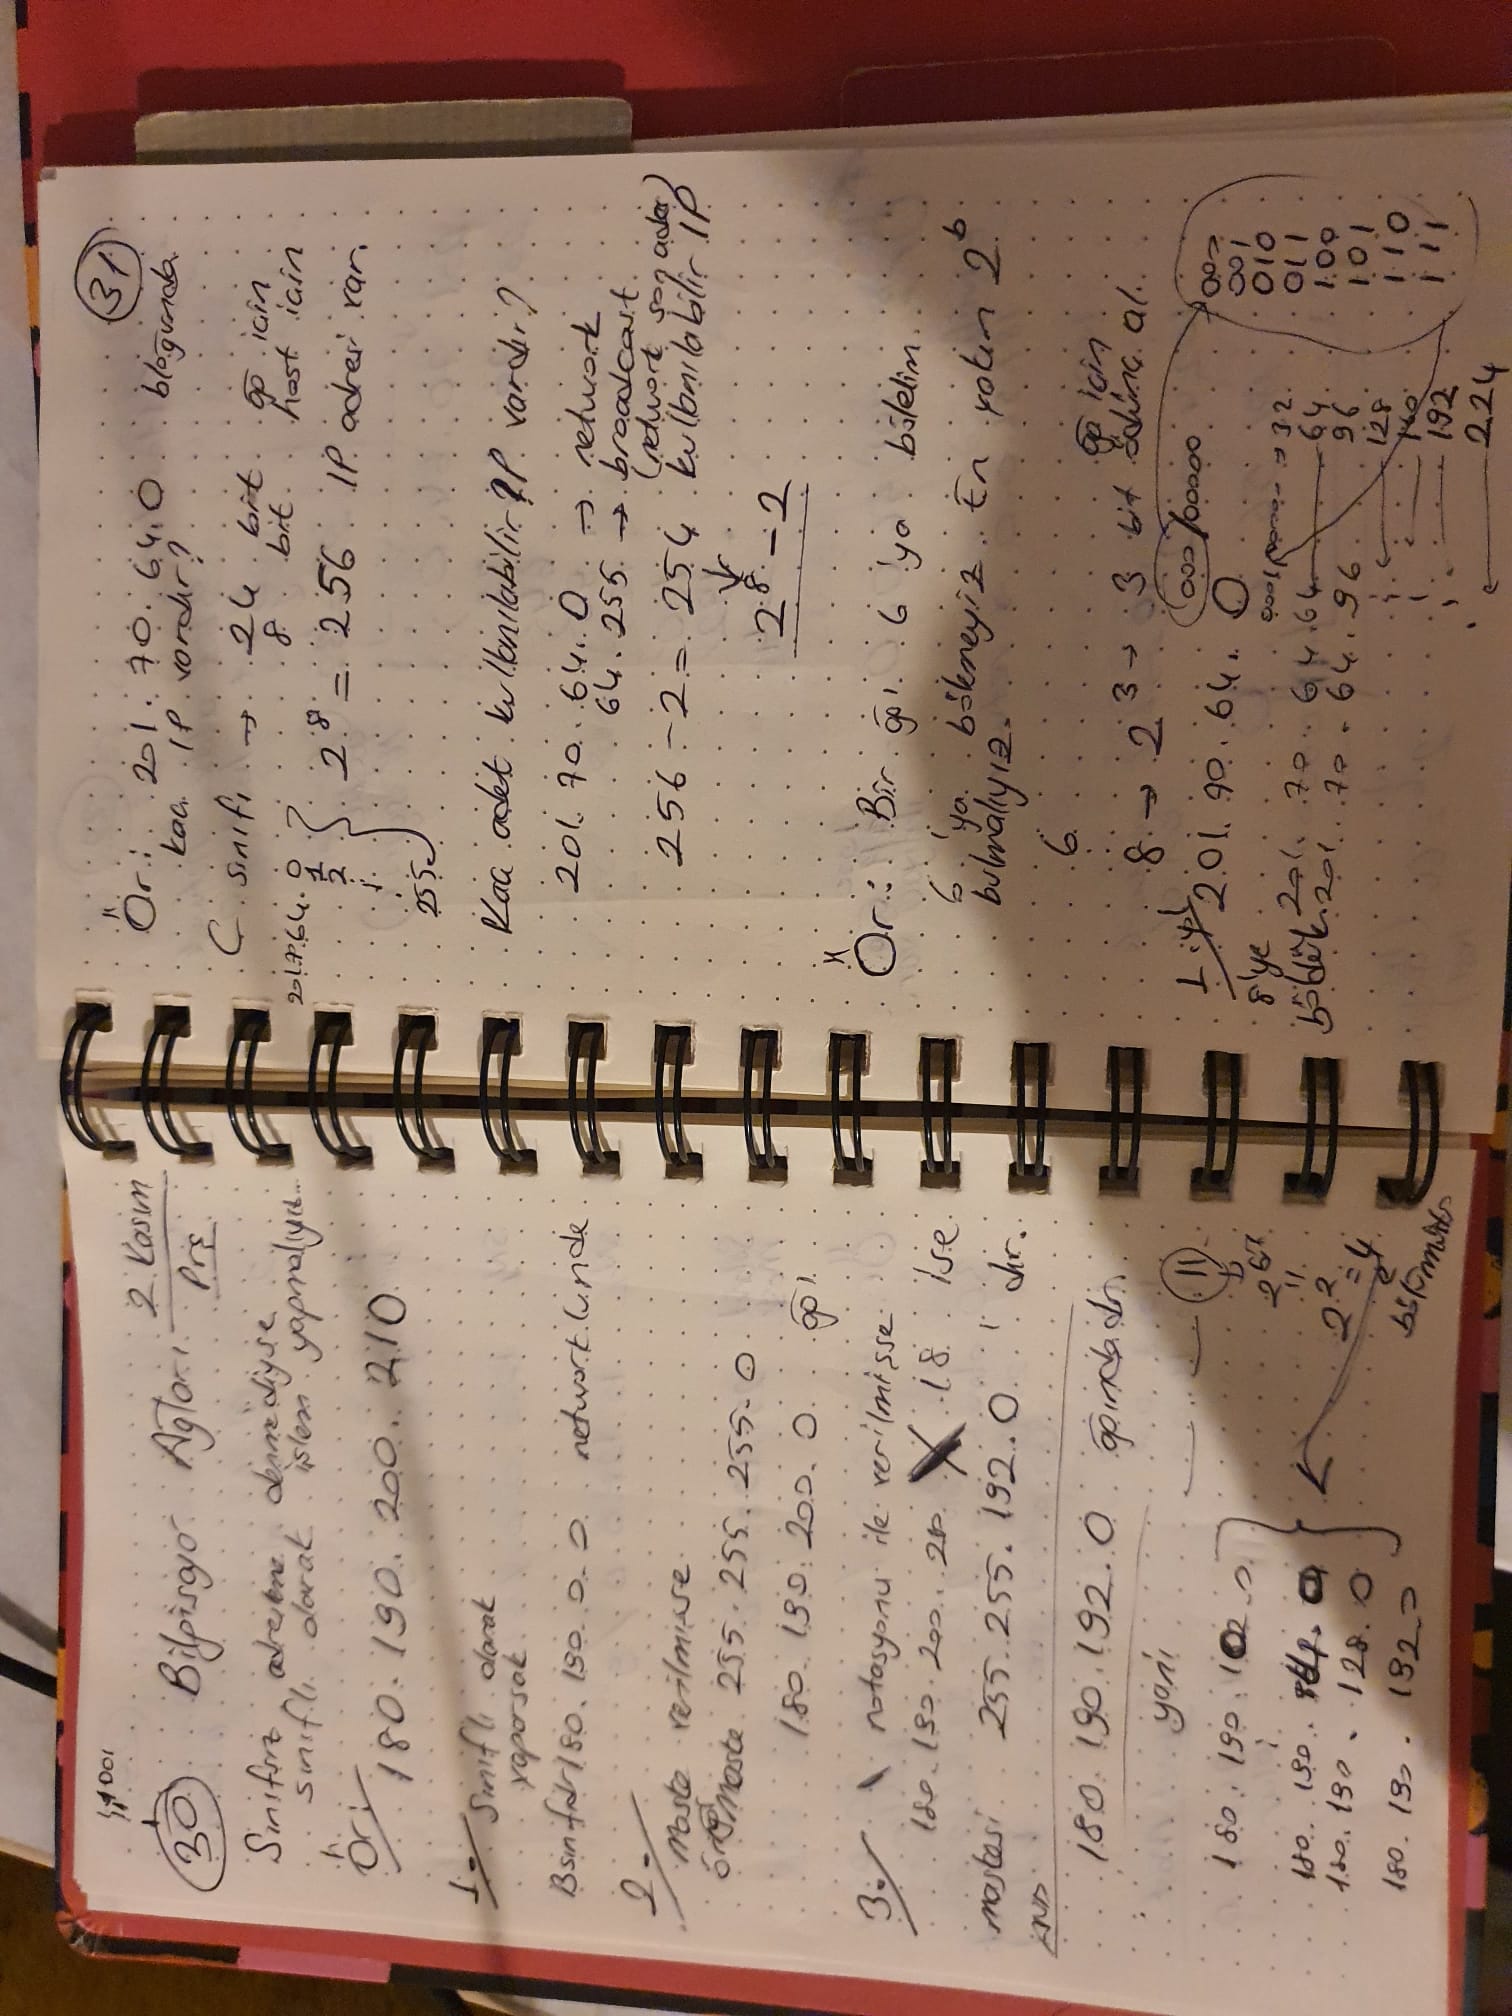 30
Bilgisayar Ağları
2 Kasım
Prş
Sınıfsız adresleme denmediyse
sınıflı olarak işlem yapmalıyız.
Ör:
180.190.200.210
1-
Sınıflı olarak
yaparsak
B sınıfıdır 180.190.0.0 network'ünde
2-
Maske verilmişse
örneğin Maske 255.255.255.0
180.190.200.0 ağı
3.
\ notasyonu ile verilmişse
180.190.200.210 18 ise
maskesi 255.255.192.0 'dır.
AND
180.190.192.0 ağındadır
yani
11
180.190.
180.190. 64.0
180.190.128.0
180.190.192.0
2² = 4
bölünmüş
31
Ör: 201.70.64.0 bloğunda
kaç IP vardır?
C sınıfı → 24 bit ağ için
8 bit host için
201.70.64.0
1
2
255
2⁸ = 256 IP adresi var.
Kaç adet kullanılabilir IP vardır?
201.70.64.0 → network
64.255 → broadcast
(network son adres)
256 - 2 = 254 kullanılabilir IP
↓
2⁸ - 2
Ör: Bir ağı 6'ya bölelim
6'ya bölemeyiz. En yakın 2ᵇ
bulmalıyız.
6
8 → 2³ → 3 bit ağ için ödünç al.
1. yol
201.70.64.0
000/00000
8'ye
böldük
= 32
201.70.64.64 64
201.70.64.96 96
128
160
192
224
000
001
010
011
100
101
110
111